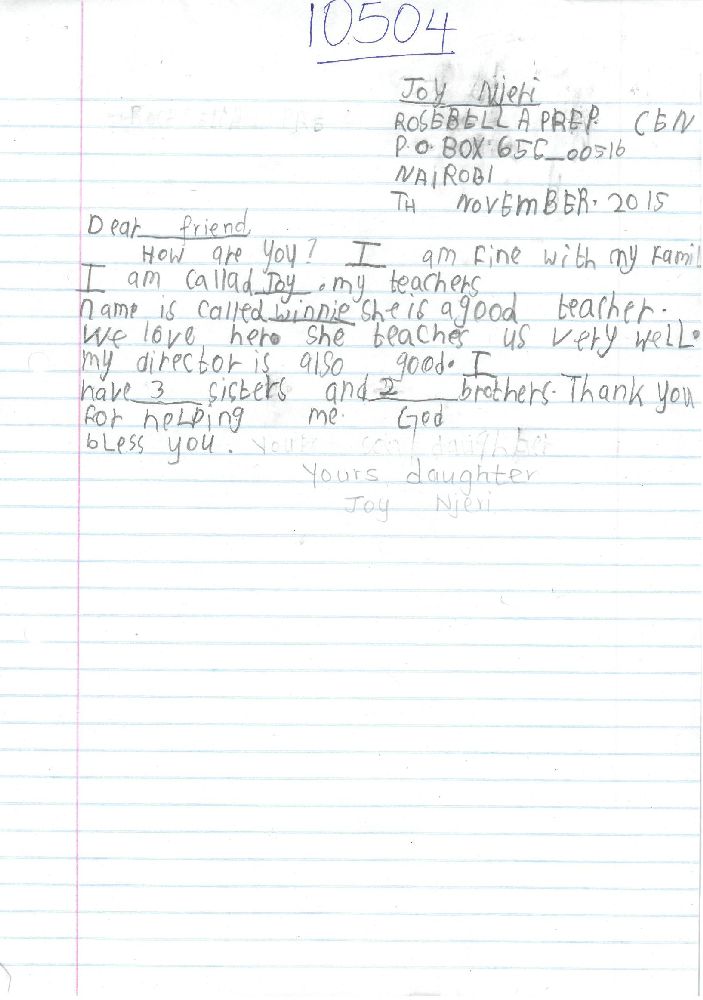 10504
Joy Njeri
ROSEBELLA PREP CEN
P.O BOX 65C_00516
NAIROBI
TH NOVEMBER. 2015
Dear friend
How are you? I am fine with my famil
I am callad Joy. my teachers
name is called winnie she is a good teacher.
we love her. she teaches us very well.
my director is also good. I
have 3 sisters and 2 brothers. Thank you
for helping me. God
bless you.
Yours daughter
Joy Njeri